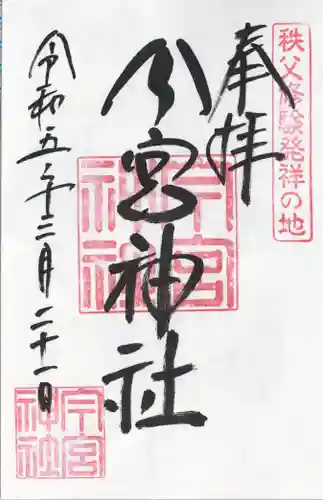 秩父修験発祥の地
奉拝
今宮神社
令和五年三月二十一日
今宮
神社
今宮
神社